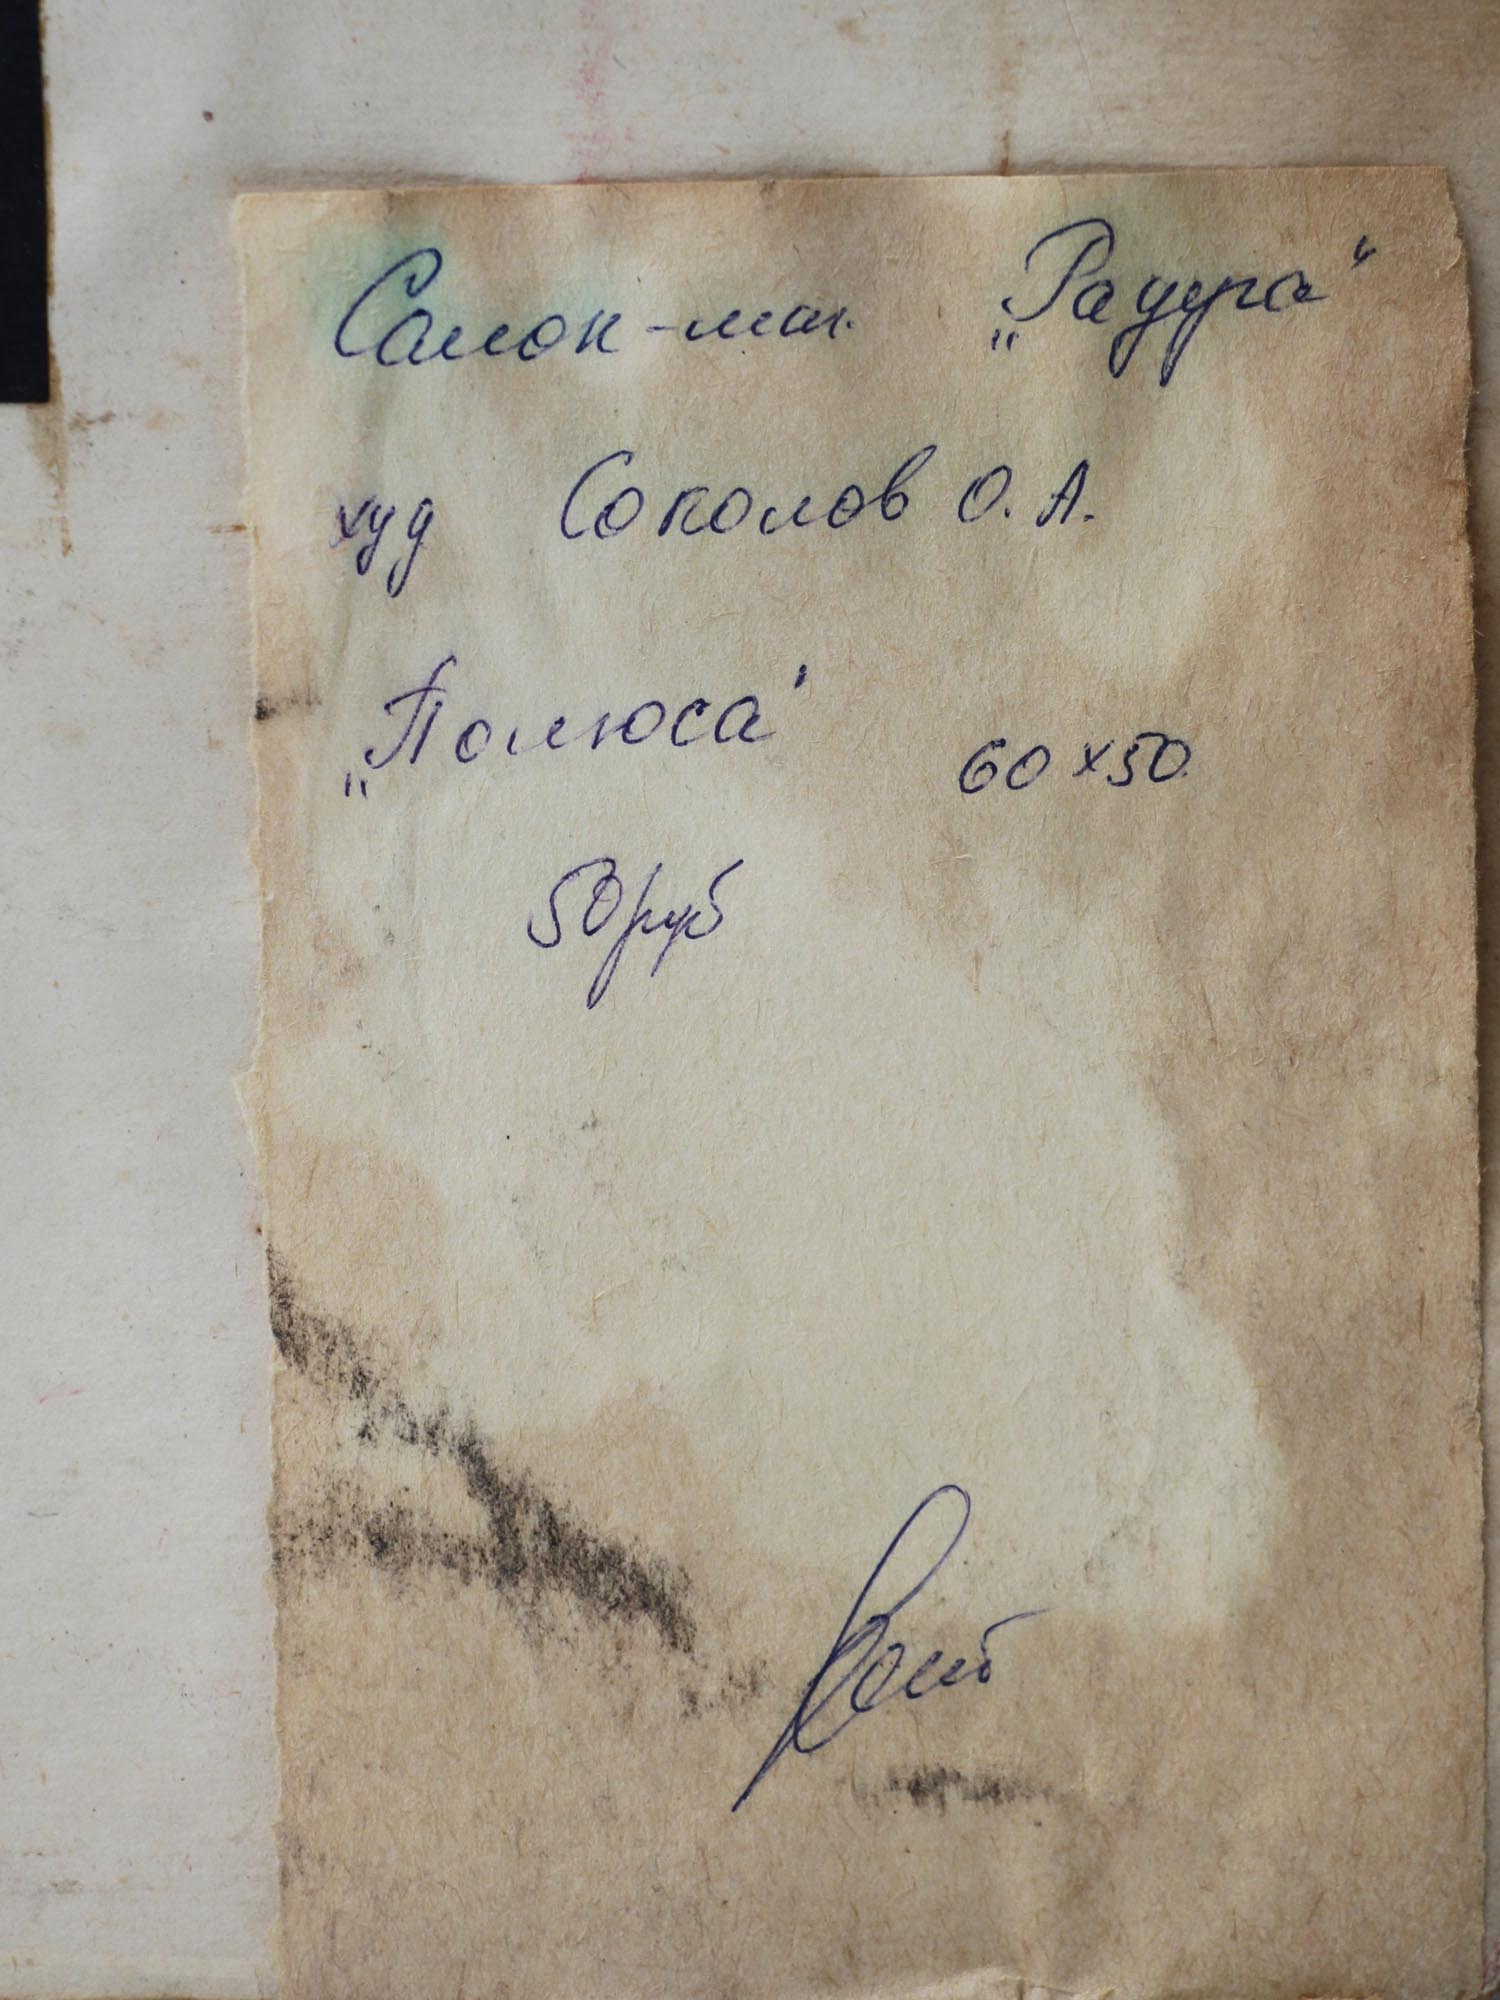 Салон-маг. „Радуга“
худ Соколов О. А.
„Полюса“ 60 х 50
50 руб